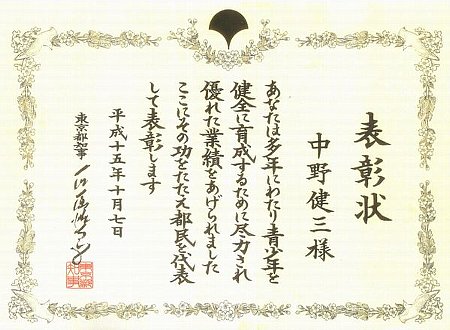 表彰状
中野健三様
あなたは多年にわたり青少年を
健全に育成するために尽力され
優れた業績をあげられました
ここにその功をたたえ都民を代表
して表彰します
平成十五年十月七日
東京都知事